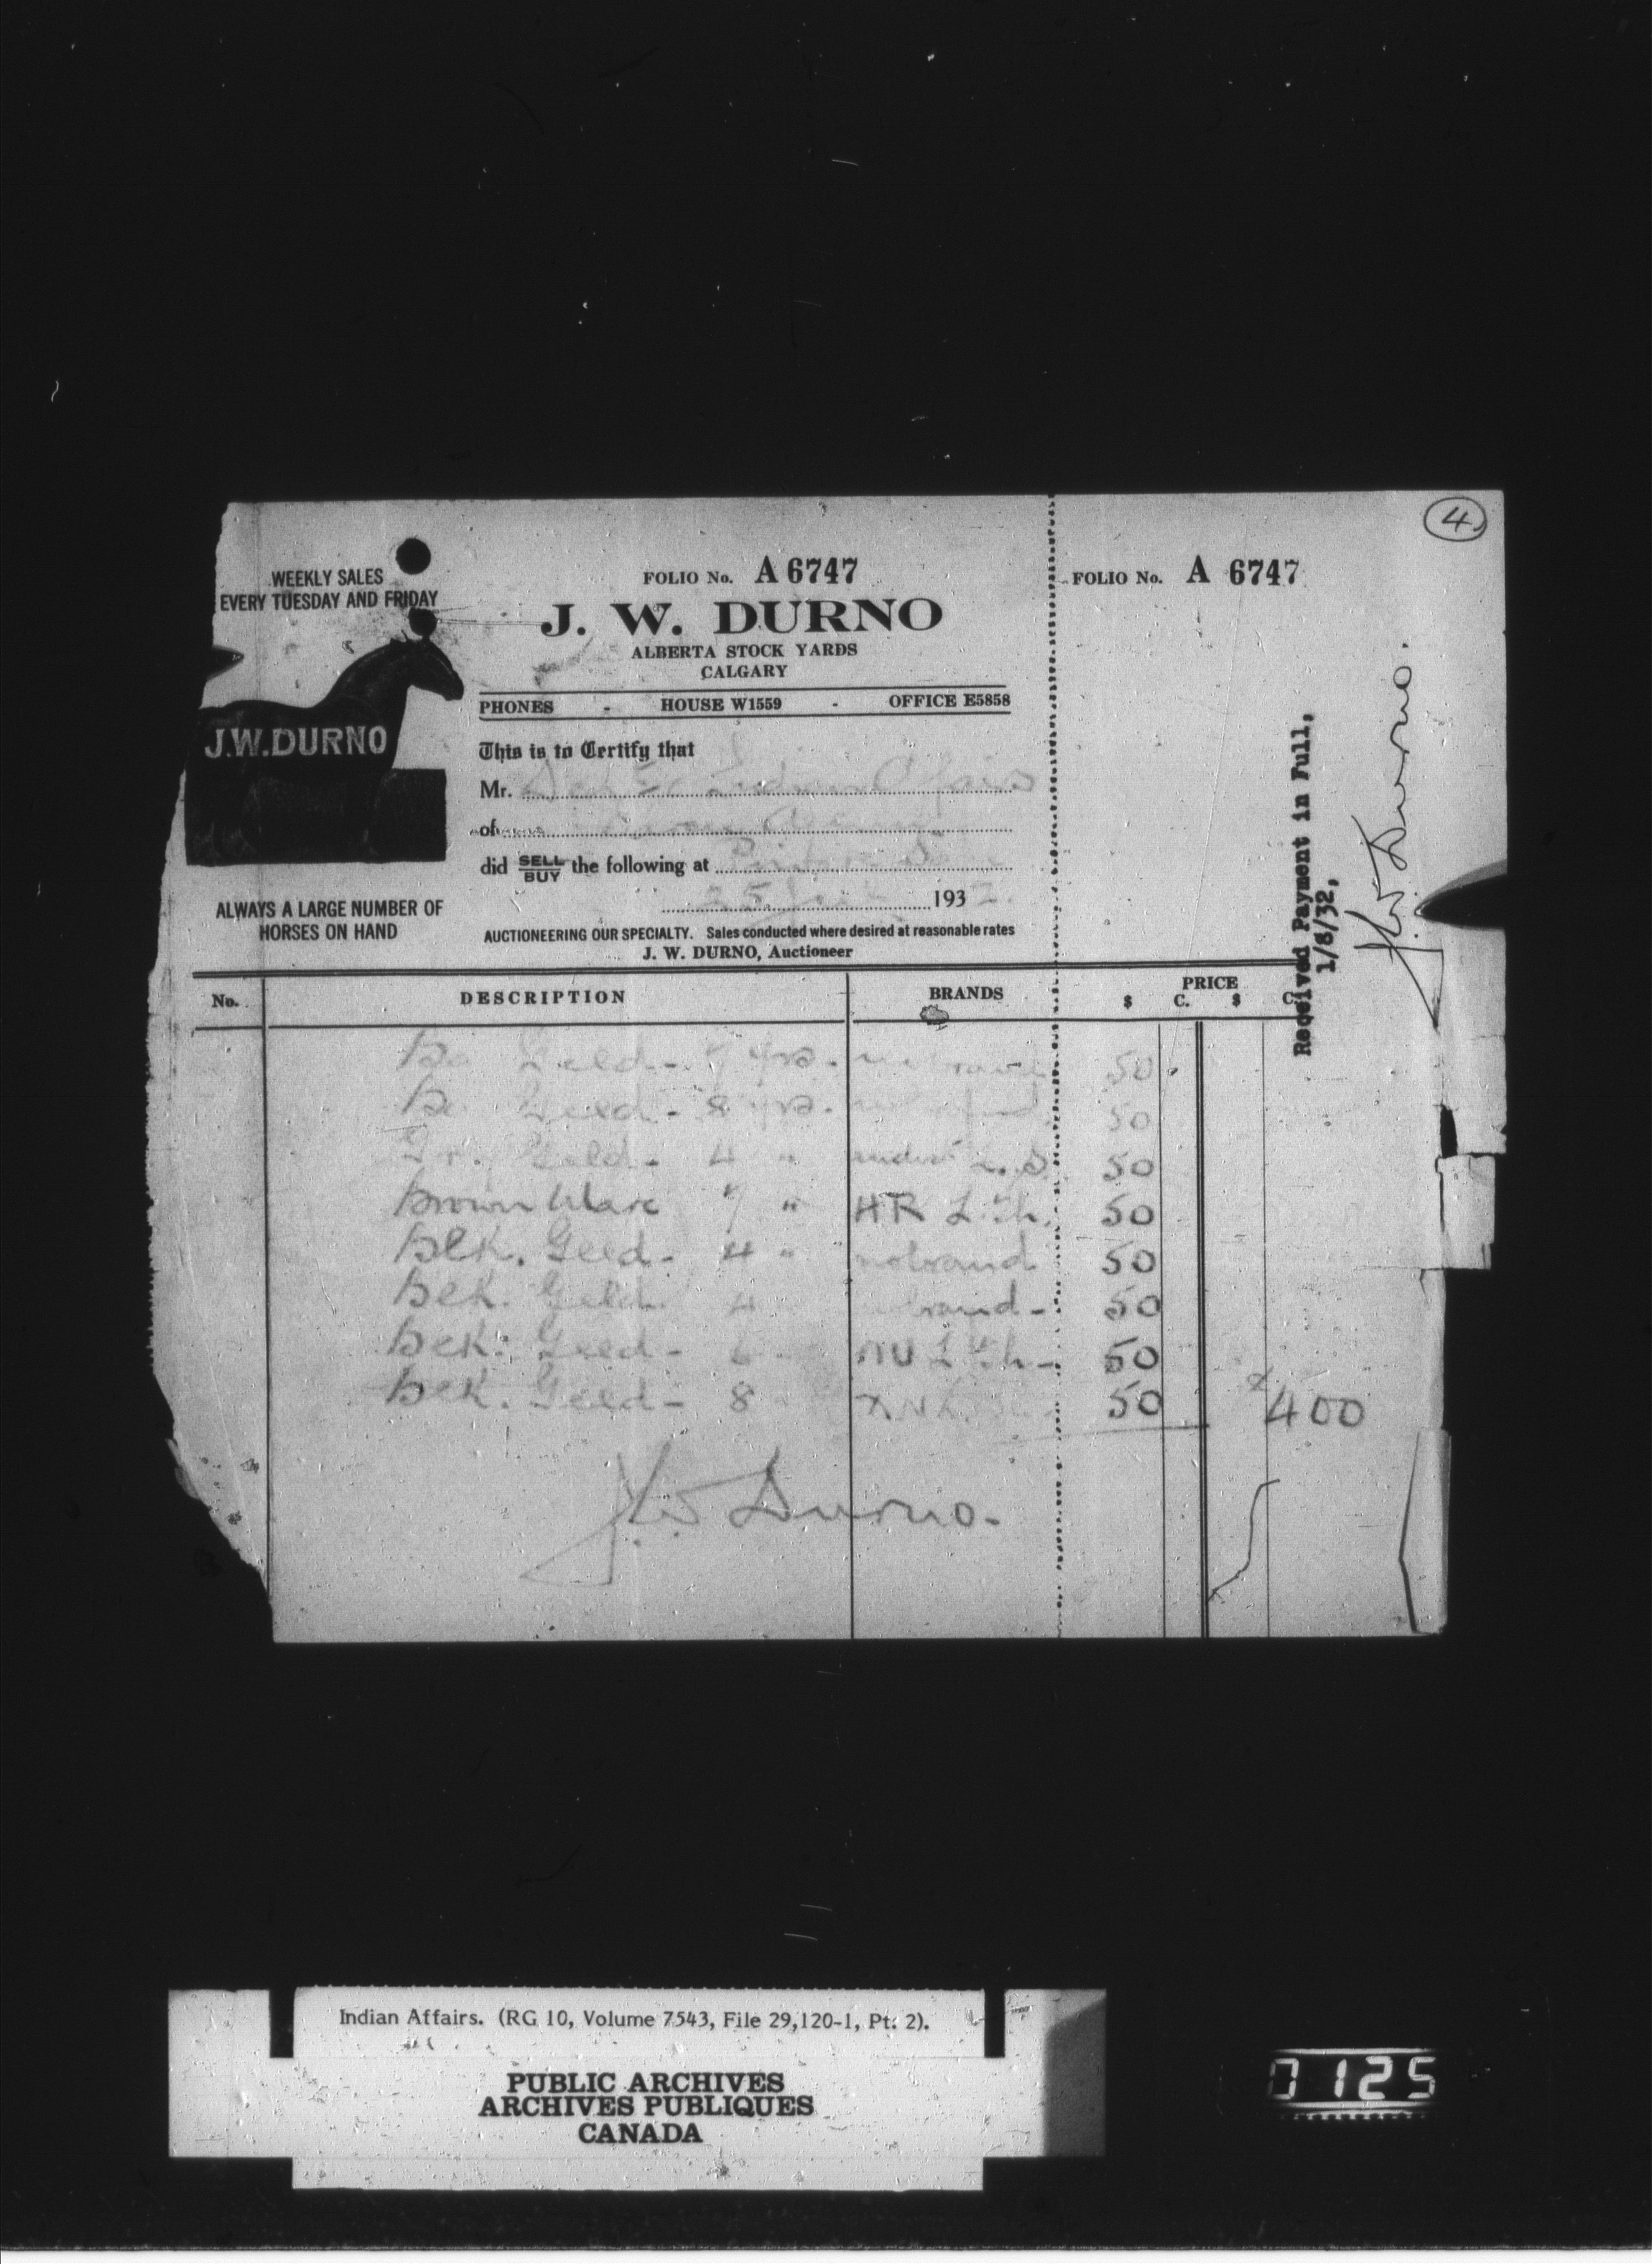 4
WEEKLY SALES
EVERY TUESDAY AND FRIDAY
J.W.DURNO
ALWAYS A LARGE NUMBER OF
HORSES ON HAND
FOLIO No. A 6747
J. W. DURNO
ALBERTA STOCK YARDS
CALGARY
PHONES - HOUSE W1559 - OFFICE E5858
This is to Certify that
Mr. Indian Affairs
of
did SELL BUY the following at
25 193 2.
AUCTIONEERING OUR SPECIALTY. Sales conducted where desired at reasonable rates
J. W. DURNO, Auctioneer
FOLIO No. A 6747
Received Payment in Full,
1/8/32,
J.W. Durno.
No. DESCRIPTION BRANDS PRICE
$ C. $ C.
Geld - yrs. 50
Geld - 8 yrs. 50
Geld - 4 " 50
Brown Mare " HR L. Th. 50
Blk. Geld - 4 " nobrand 50
Blk. Geld 4 brand - 50
Blk. Geld - 50
Blk. Geld - 8 50 400
J.W. Durno.
Indian Affairs. (RG 10, Volume 7543, File 29,120-1, Pt. 2).
PUBLIC ARCHIVES
ARCHIVES PUBLIQUES
CANADA
0125